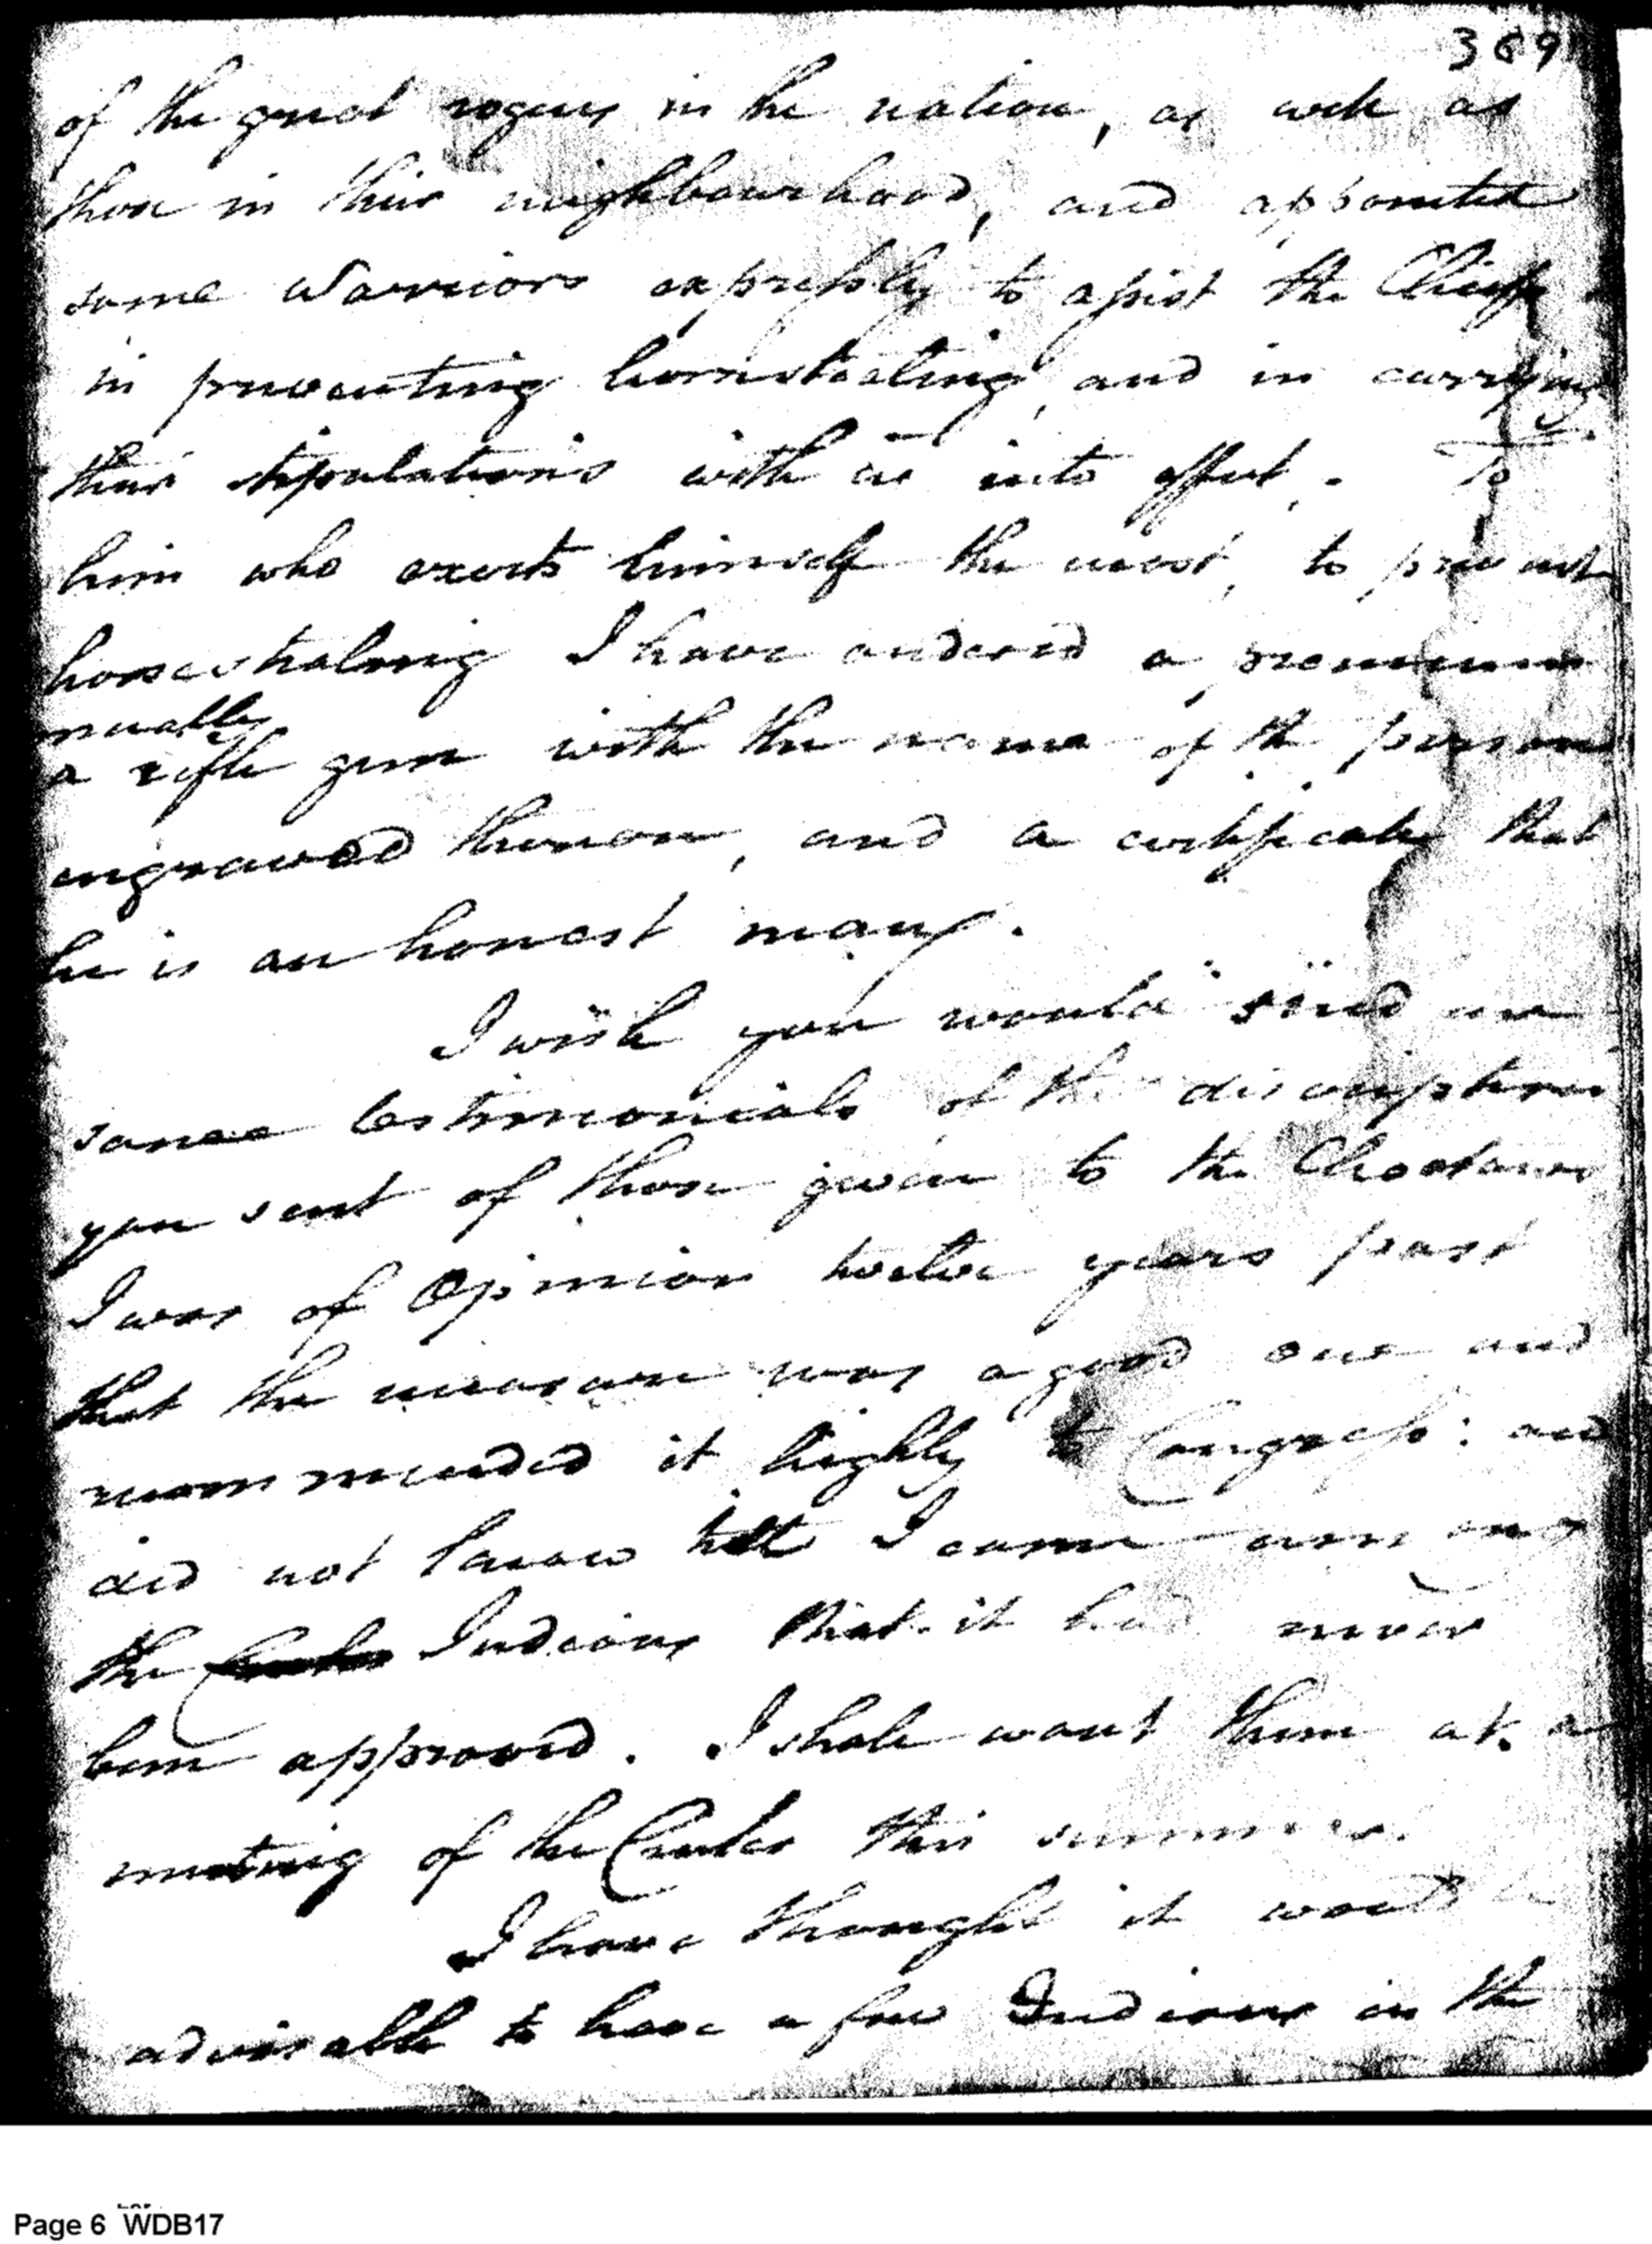 369
of the great rogues in the nation, as well as
those in their neighbourhood, and appointed
some warriors expressly to assist the Chiefs
in preventing horsestealing, and in carrying
their stipulations with us into effect. - To
him who exerts himself the most, to prevent
horsestealing I have ordered a premium
nually
a rifle gun with the name of the person
engraved thereon, and a certificate that
he is an honest man.
I wish you would send me
some testimonials of the discription
you sent of those given to the Choctaws
I was of Opinion twelve years past
that the measure was a good one and
recommended it highly to Congress: and
did not know till I came among
the Creeks Indians that it had never
been approved. I shall want them at a
meeting of the Creeks this summer.
I have thought it would be
advisable to have a few Indians in the
Page 6 WDB17